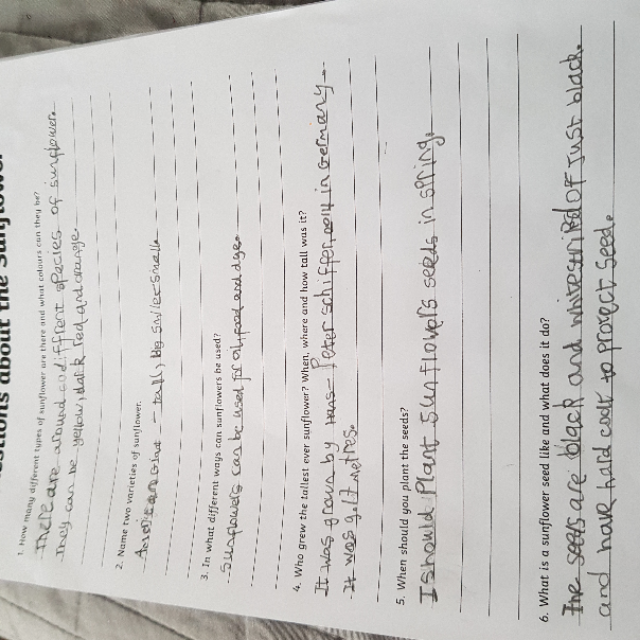 estions about the Sunflower
1. How many different types of sunflower are there and what colours can they be?
There are around different species of sunflower.
They can be yellow, dark red and orange.
2. Name two varieties of sunflower.
American Giant - tall, big
3. In what different ways can sunflowers be used?
Sunflowers can be used for oil, food and dye.
4. Who grew the tallest ever sunflower? When, where and how tall was it?
It was grown by Hans-Peter schiffer in Germany.
It was 9.17 metres.
5. When should you plant the seeds?
I should Plant sunflowers seeds in spring.
6. What is a sunflower seed like and what does it do?
The seeds are black and white striped or Just black.
and have hard coat to protect seed.